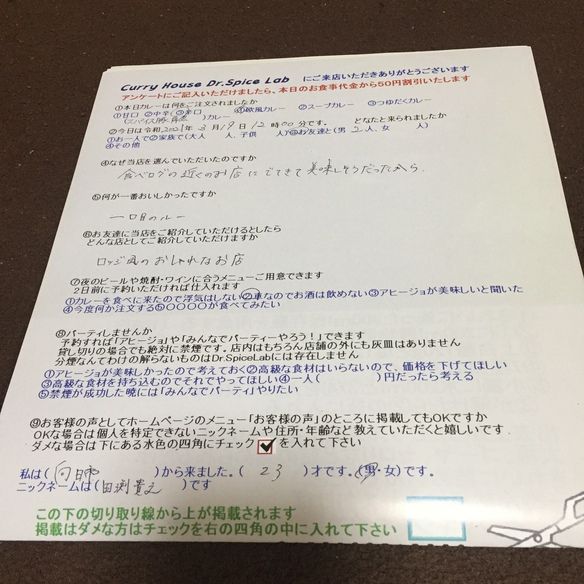 Curry House Dr.Spice Lab にご来店いただきありがとうございます
アンケートにご記入いただけましたら、本日のお食事代金から50円割引いたします
①本日カレーは何をご注文されましたか
①甘口 ②中辛 ③辛口
)カレー ①欧風カレー ②スープカレー ③つゆだくカレー
②今日は令和 2021年 3月 19日 12時00分です。 どなたと来られましたか
①お一人で②家族で(大人 人、子供 人)③お友達と(男 2人、女 人)
④その他
④なぜ当店を選んでいただいたのですか
食べログの近くのお店にでてきて美味しそうだったから。
⑤何が一番おいしかったですか
一口目のルー
⑥お友達に当店をご紹介していただけるとしたら
どんな店としてご紹介していただけますか
ロッジ風のおしゃれなお店
⑦夜のビールや焼酎・ワインに合うメニューご用意できます
2日前に予約いただければ仕入れます
①カレーを食べに来たので浮気はしない②車なのでお酒は飲めない③アヒージョが美味しいと聞いた
④今度何か注文する⑤〇〇〇〇が食べてみたい
⑧パーティしませんか
予約すれば「アヒージョ」や「みんなでパーティーやろう！」できます
貸し切りの場合でも絶対に禁煙です。店内はもちろん店舗の外にも灰皿はありません
分煙なんてわけの解らないものはDr.SpiceLabには存在しません
①アヒージョが美味しかったので考えておく②高級な食材はいらないので、価格を下げてほしい
③高級な食材を持ち込むのでそれでやってほしい④一人( )円だったら考える
⑤禁煙が成功した暁には「みんなでパーティ」やりたい
⑨お客様の声としてホームページのメニュー「お客様の声」のところに掲載してもOKですか
OKな場合は個人を特定できないニックネームや住所・年齢など教えていただくと嬉しいです
ダメな場合は下にある水色の四角にチェック を入れて下さい
私は( 向日市 )から来ました。( 23 )才です。(男・女)です。
ニックネームは( 田渕貴之 )です
この下の切り取り線から上が掲載されます
掲載はダメな方はチェックを右の四角の中に入れて下さい